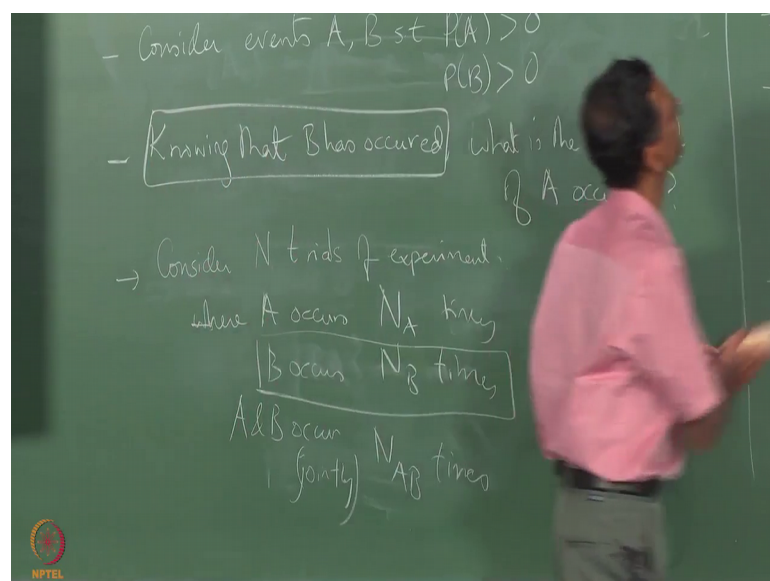 - Consider events A, B st P(A) > 0
P(B) > 0
- Knowing that B has occured, what is the
of A occ ?
→ Consider N trials of experiment.
where A occurs N_A times
B occurs N_B times
A & B occur
(jointly) N_AB times
NPTEL